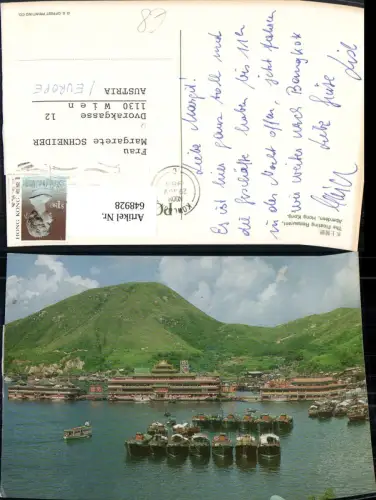 Liebe Margit!
Es ist hier ganz toll und
die Geschäfte haben bis 11h
in der Nacht offen, jetzt fahren
wir weiter nach Bangkok
Liebe Grüße
Frau
Margarete SCHNEIDER
Dvorakgasse 12
1130 Wien
AUSTRIA
/ EUROPE
Artikel Nr.
648928
HONG KONG
KOWLOON
The Floating Restaurant,
Aberdeen, Hong Kong.